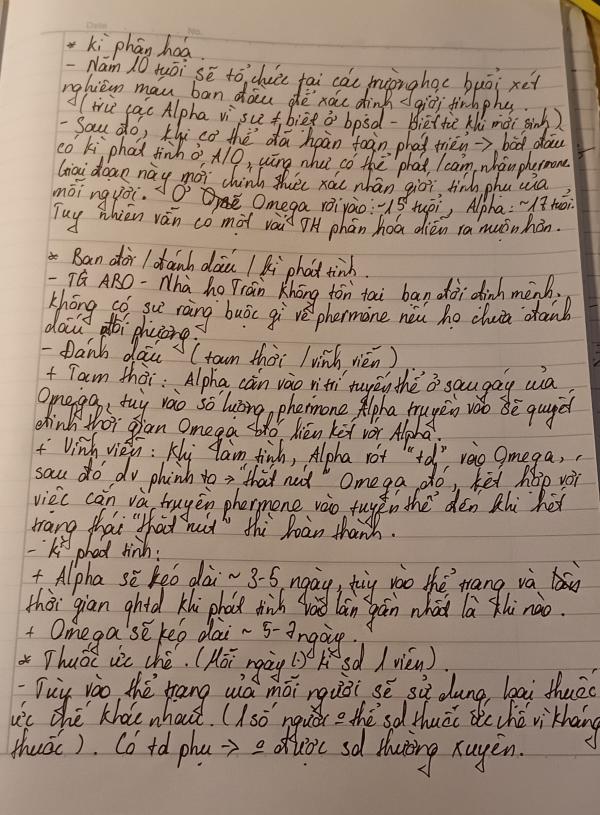 Date No.
* Kì phân hoá
- Năm 10 tuổi sẽ tổ chức tại các trường học buổi xét
nghiệm máu ban đầu để xác định giới tính phụ.
(trừ các Alpha vì sự # biệt ở bpsd - biết từ khi mới sinh)
- Sau đó, khi cơ thể đã hoàn toàn phát triển → bắt đầu
có kì phát tình ở A/O, cũng như có thể phát/cảm nhận phermone.
Giai đoạn này mới chính thức xác nhận giới tính phụ của
mỗi người. Ở Omega rơi vào: ~15 tuổi, Alpha: ~17 tuổi.
Tuy nhiên vẫn có một vài TH phân hoá diễn ra muộn hơn.
* Bạn đời / đánh dấu / kì phát tình.
- TG ABO - Nhà họ Trần không tồn tại bạn đời định mệnh.
Không có sự ràng buộc gì về phermone nếu họ chưa đánh
dấu đối phương.
- Đánh dấu (tạm thời / vĩnh viễn)
+ Tạm thời: Alpha cắn vào vị trí tuyến thể ở sau gáy của
Omega, tùy vào số lượng phermone Alpha truyền vào sẽ quyết
định thời gian Omega đó liên kết với Alpha.
+ Vĩnh viễn: Khi làm tình, Alpha rót "td" vào Omega,
sau đó dv phình to → "thắt nút" Omega đó, kết hợp với
việc cắn và truyền phermone vào tuyến thể đến khi hết
trạng thái "thắt nút" thì hoàn thành.
- Kì phát tình:
+ Alpha sẽ kéo dài ~ 3-5 ngày, tùy vào thể trạng và
thời gian qhtd khi phát tình vào lần gần nhất là khi nào.
+ Omega sẽ kéo dài ~ 5-7 ngày.
* Thuốc ức chế. (Mỗi ngày (-) kì sd 1 viên).
- Tùy vào thể trạng của mỗi người sẽ sử dụng loại thuốc
ức chế khác nhau. (1 số người º thể sd thuốc ức chế vì kháng
thuốc). Có td phụ → º được sd thường xuyên.